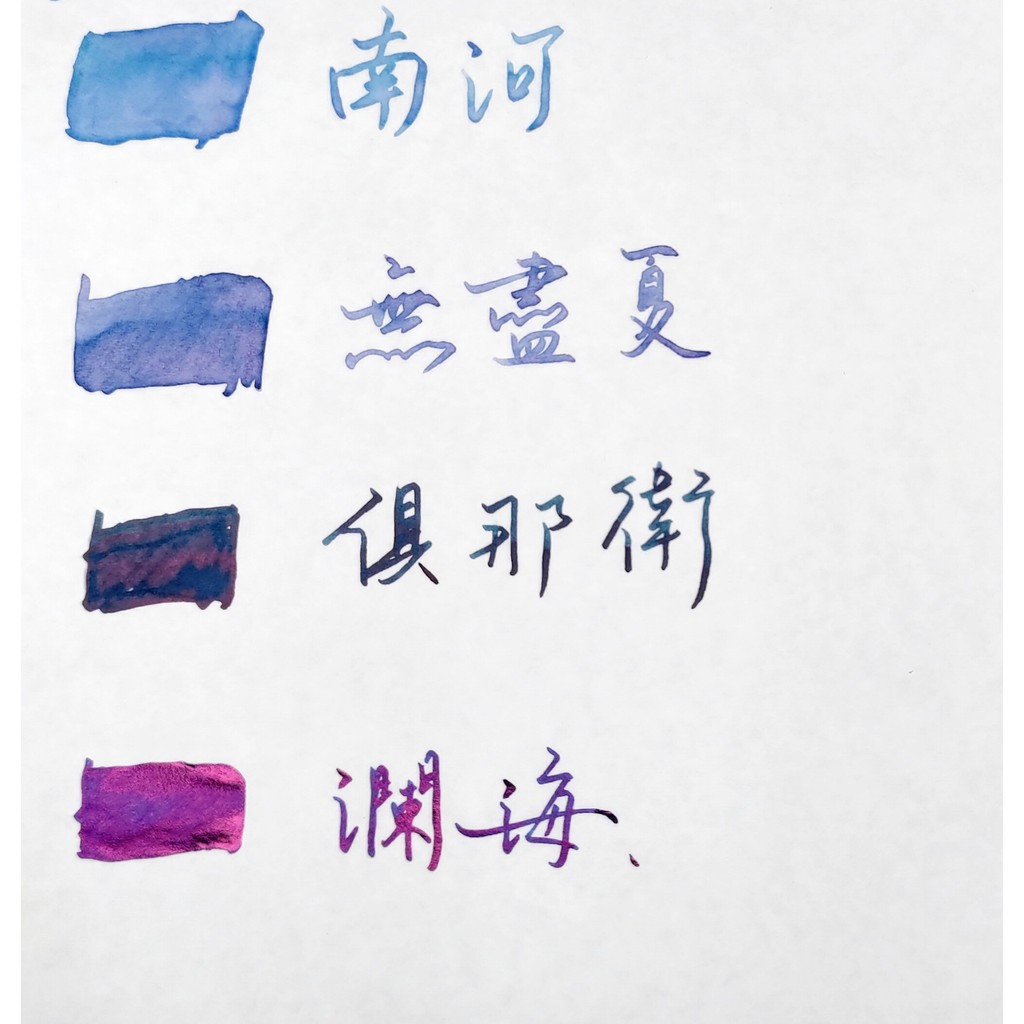 南河
無盡夏
俱那衛
瀾海、